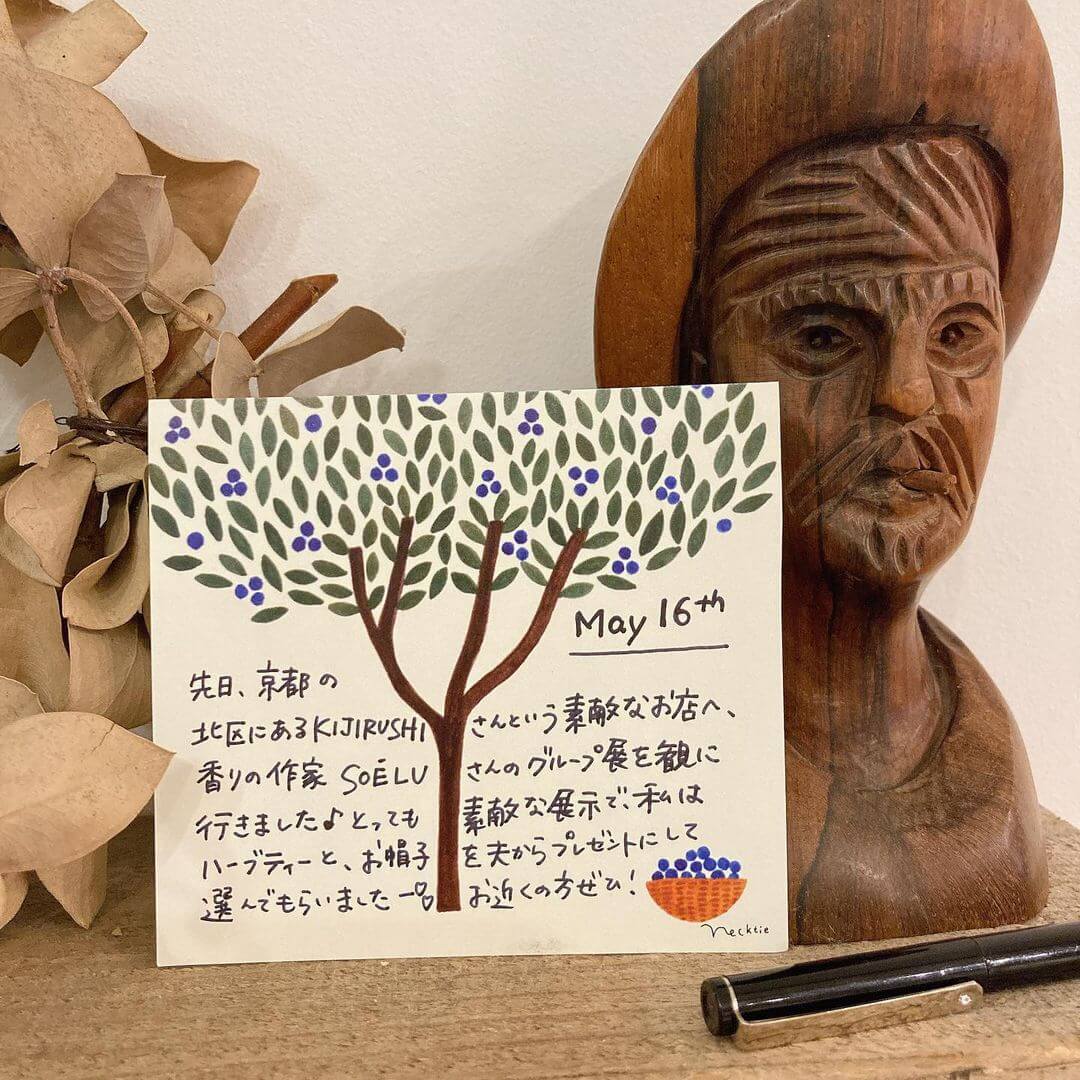 May 16th
先日、京都の
北区にあるKIJIRUSHI さんという素敵なお店へ、
香りの作家 SOĒLU さんのグループ展を観に
行きました♪とっても 素敵な展示で、私は
ハーブティーと、お帽子 を夫からプレゼントにして
選んでもらいましたー♡ お近くの方ぜひ!
necktie